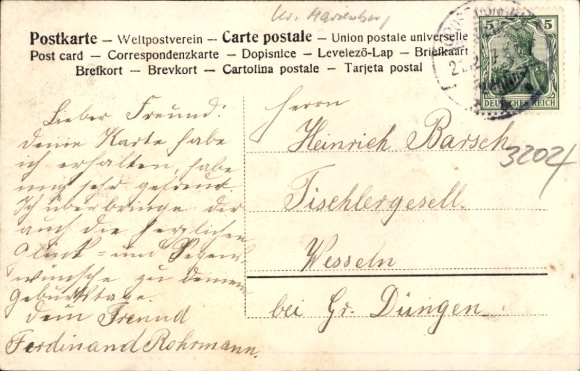 Kr. Marienburg
Postkarte – Weltpostverein – Carte postale – Union postale universelle
Post card – Correspondenzkarte – Dopisnice – Levelező-Lap – Briefkaart
Brefkort – Brevkort – Cartolina postale – Tarjeta postal
5 5
DEUTSCHES REICH
Lieber Freund!
Deine Karte habe
ich erhalten, habe
mich sehr gefreut
Ich überbringe dir
auch die herzlichen
Glück- und Segens
wünsche zu deinem
Geburtstage.
Dein Freund
Ferdinand Rohrmann.
Herrn
Heinrich Barsch
3204
Tischlergesell.
Wesseln
bei Gr. Düngen